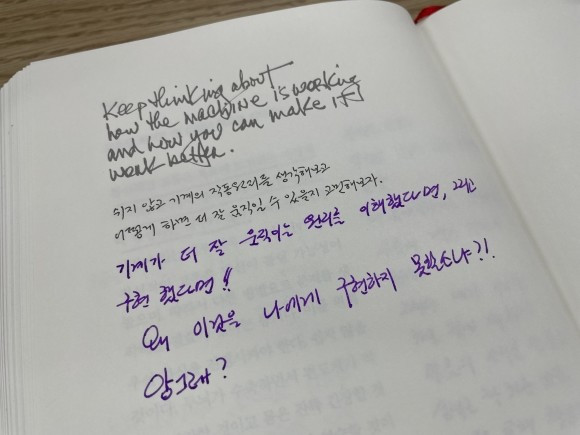 Keep thinking about
how the machine is working
and how you can make it
work better.
쉬지 않고 기계의 작동원리를 생각해보고
어떻게 하면 더 잘 움직일 수 있을지 고민해보자.
기계가 더 잘 움직이는 원리를 이해했다면, 그리고
구현했다면!!
왜 이것을 나에게 구현하지 못했느냐?!
안그래?